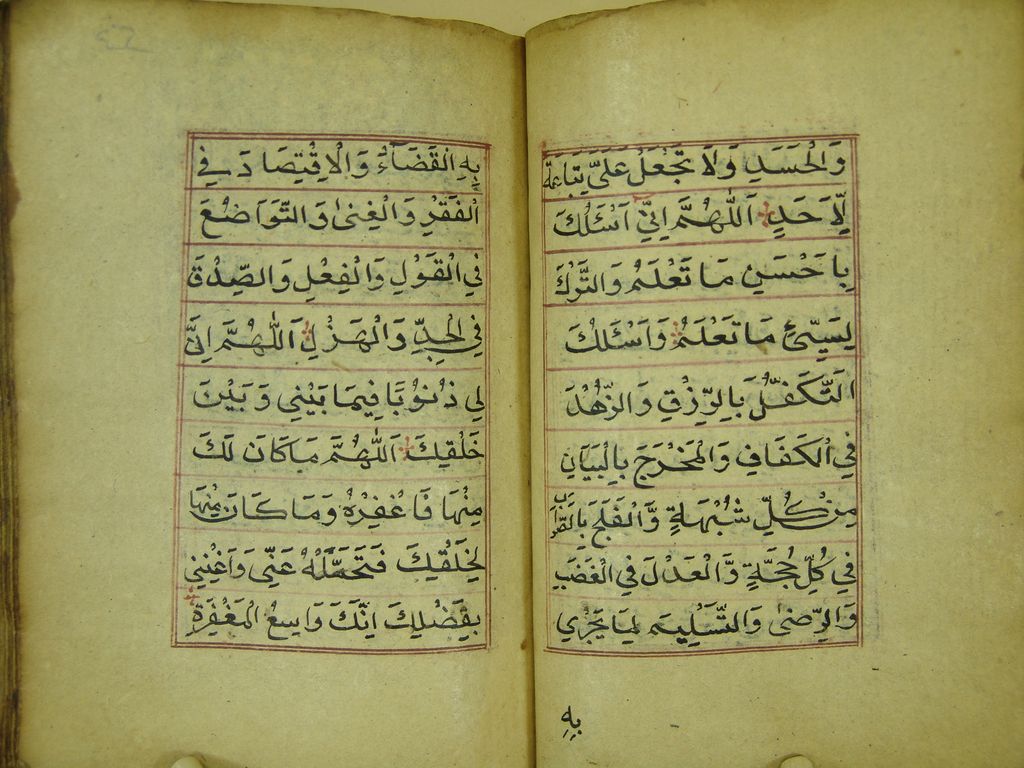 وَالْحَسَدِ وَلَا تَجْعَلْ عَلَيَّ تِبَاعَةً
لِاَحَدٍ اَللّٰهُمَّ اِنِّي اَسْئَلُكَ
بِاَحْسَنِ مَا تَعْلَمُ وَالتَّرْكَ
لِسَيِّئِ مَا تَعْلَمُ وَاَسْئَلُكَ
التَّكَفُّلَ بِالرِّزْقِ وَالزُّهْدَ
فِي الْكَفَافِ وَالْمَخْرَجَ بِالْبَيَانِ
مِنْ كُلِّ شُبْهَةٍ وَّالْفَلَجَ بِالصَّوَابِ
فِي كُلِّ حُجَّةٍ وَّالْعَدْلَ فِي الْغَضَبِ
وَالرِّضٰى وَالتَّسْلِيمَ لِمَا يَجْرِي
بِهِ
بِهِ الْقَضَآءُ وَالْاِقْتِصَادَ فِي
الْفَقْرِ وَالْغِنٰى وَالتَّوَاضُعَ
فِي الْقَوْلِ وَالْفِعْلِ وَالصِّدْقَ
فِي الْجِدِّ وَالْهَزْلِ اَللّٰهُمَّ اِنَّ
لِي ذُنُوْبًا فِيمَا بَيْنِي وَبَيْنَ
خَلْقِكَ اَللّٰهُمَّ مَا كَانَ لَكَ
مِنْهَا فَاغْفِرْهُ وَمَا كَانَ مِنْهَا
لِخَلْقِكَ فَتَحَمَّلْهُ عَنِّي وَاَغْنِنِي
بِفَضْلِكَ اِنَّكَ وَاسِعُ الْمَغْفِرَةِ